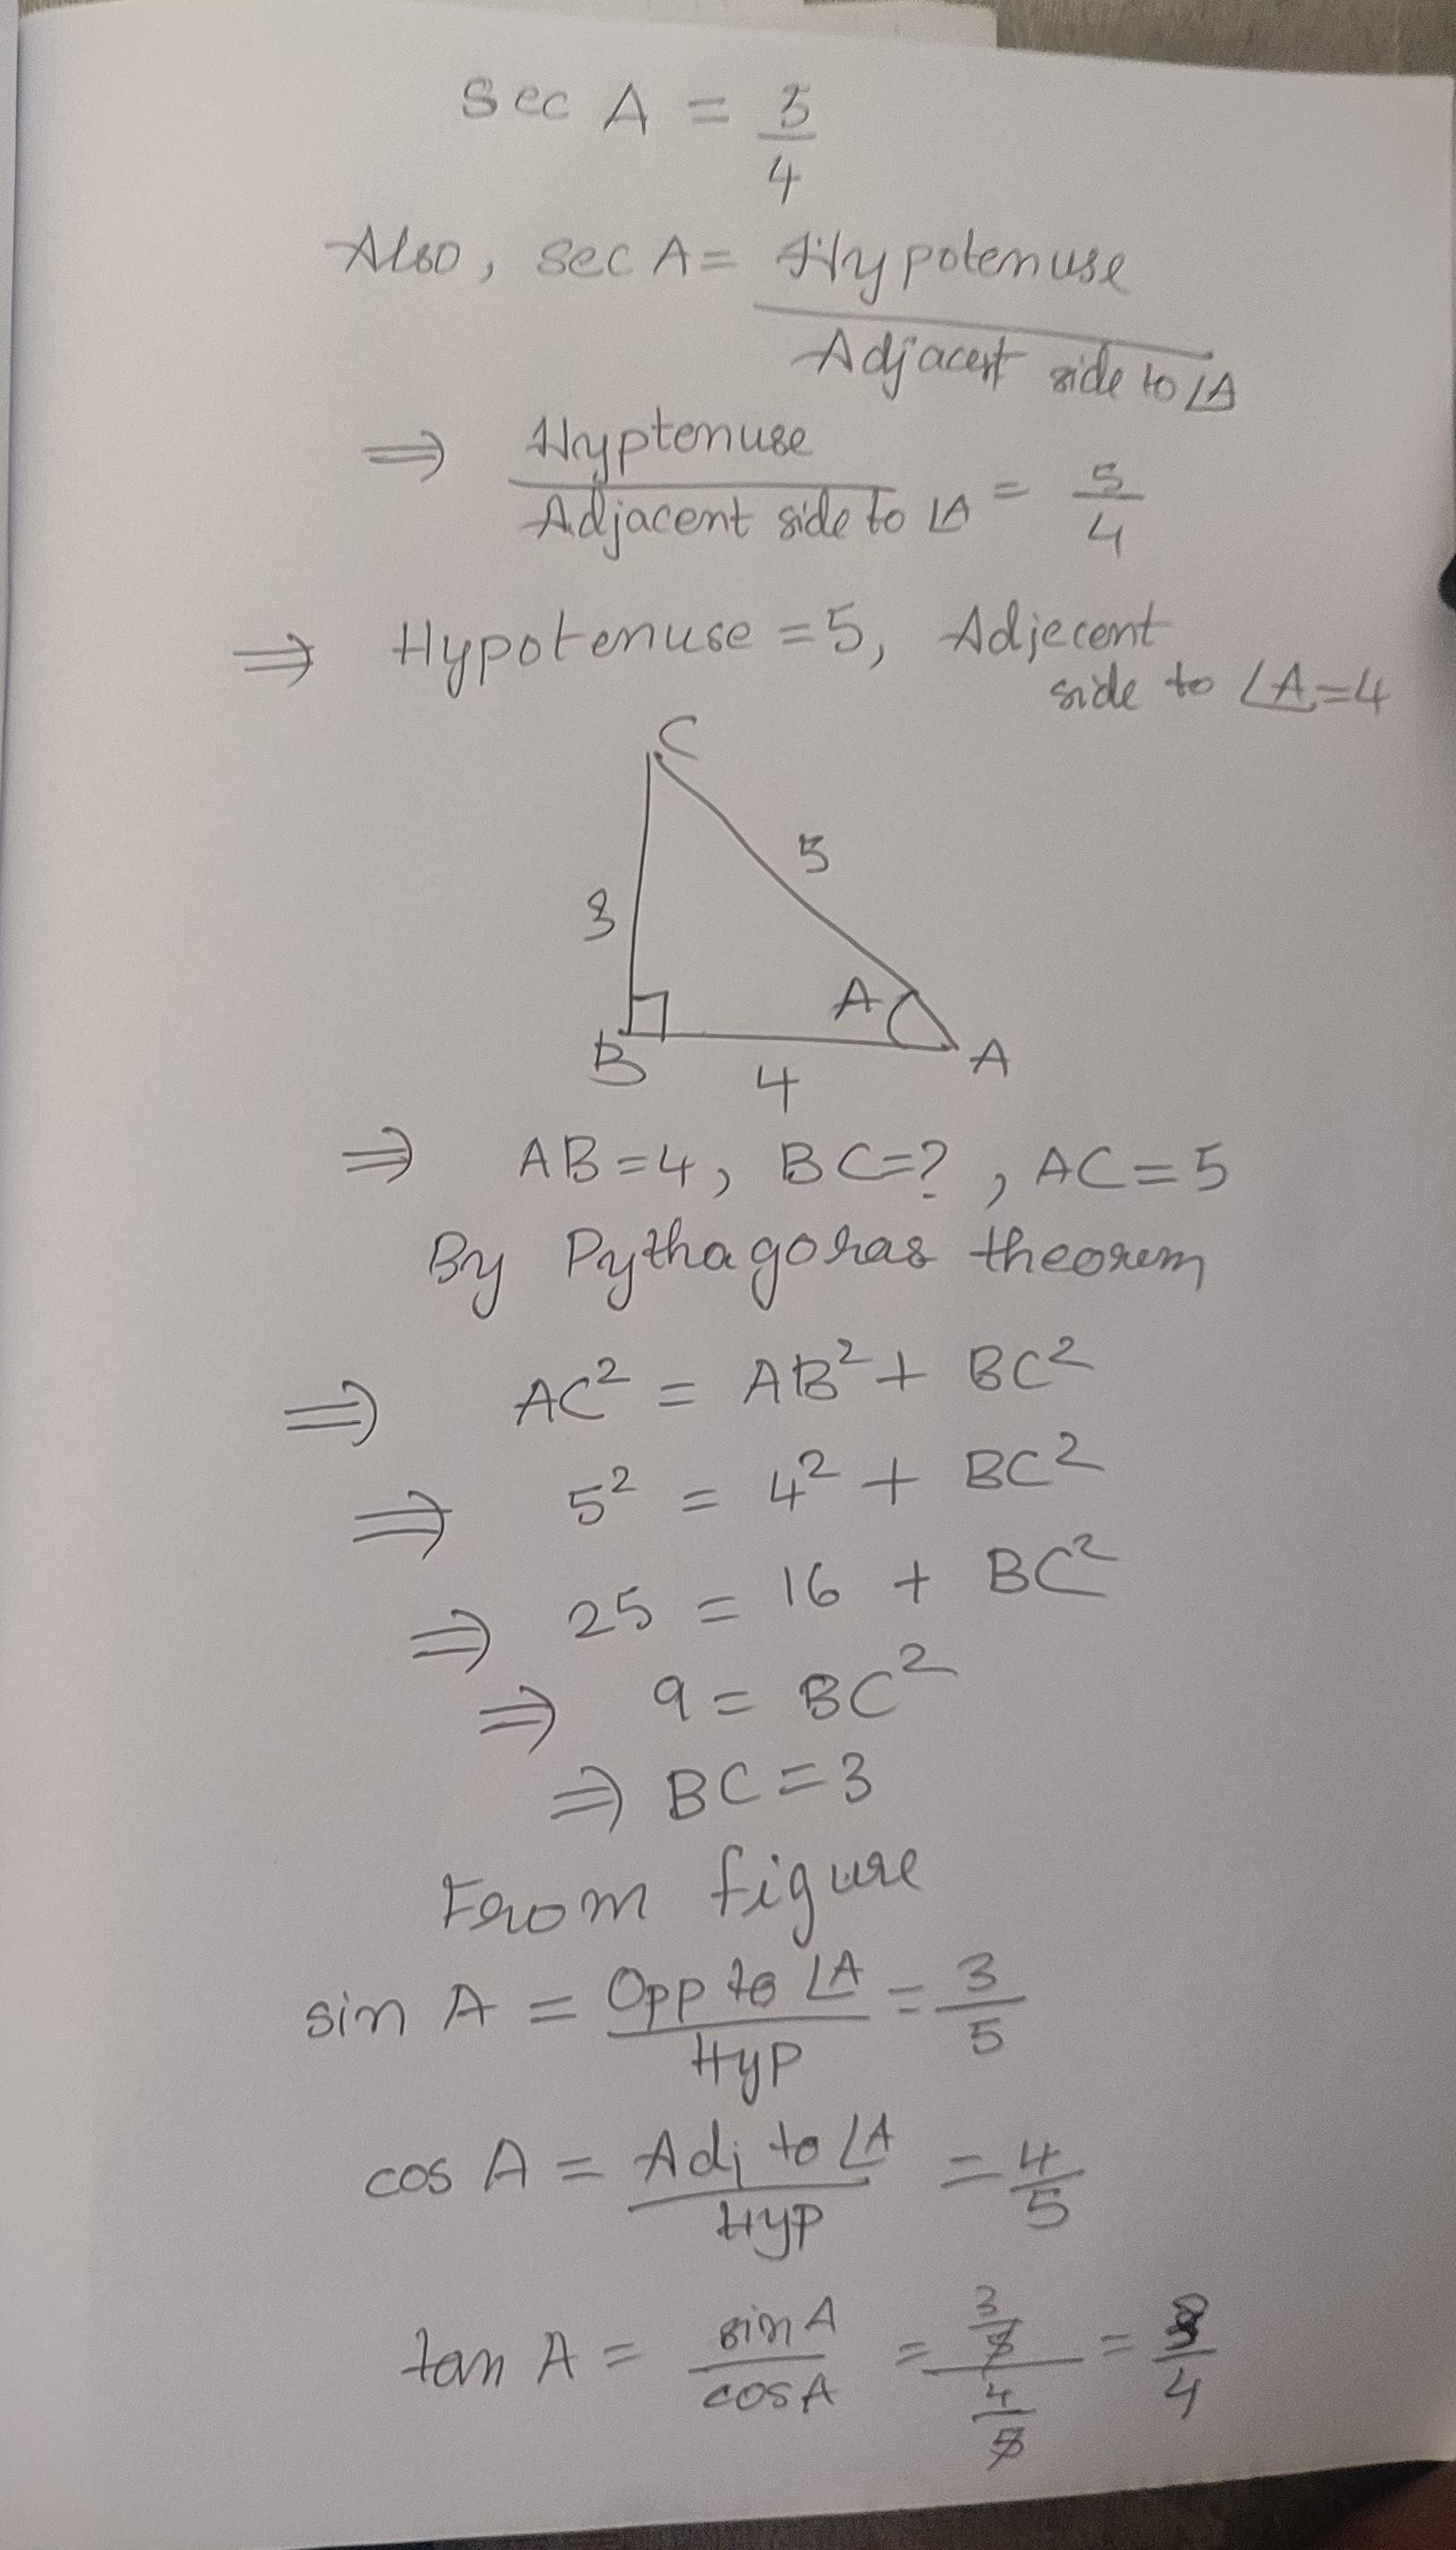 sec A = 5/4
Also, sec A = Hypotenuse / Adjacent side to ∠A
⇒ Hyptenuse / Adjacent side to ∠A = 5/4
⇒ Hypotenuse = 5, Adjecent
side to ∠A = 4
C
5
3
A
B
A
4
⇒ AB = 4, BC = ?, AC = 5
By Pythagoras theorem
⇒ AC² = AB² + BC²
⇒ 5² = 4² + BC²
⇒ 25 = 16 + BC²
⇒ 9 = BC²
⇒ BC = 3
From figure
sin A = Opp to ∠A / Hyp = 3/5
cos A = Adj to ∠A / Hyp = 4/5
tan A = sin A / cos A = (3/5) / (4/5) = 3/4